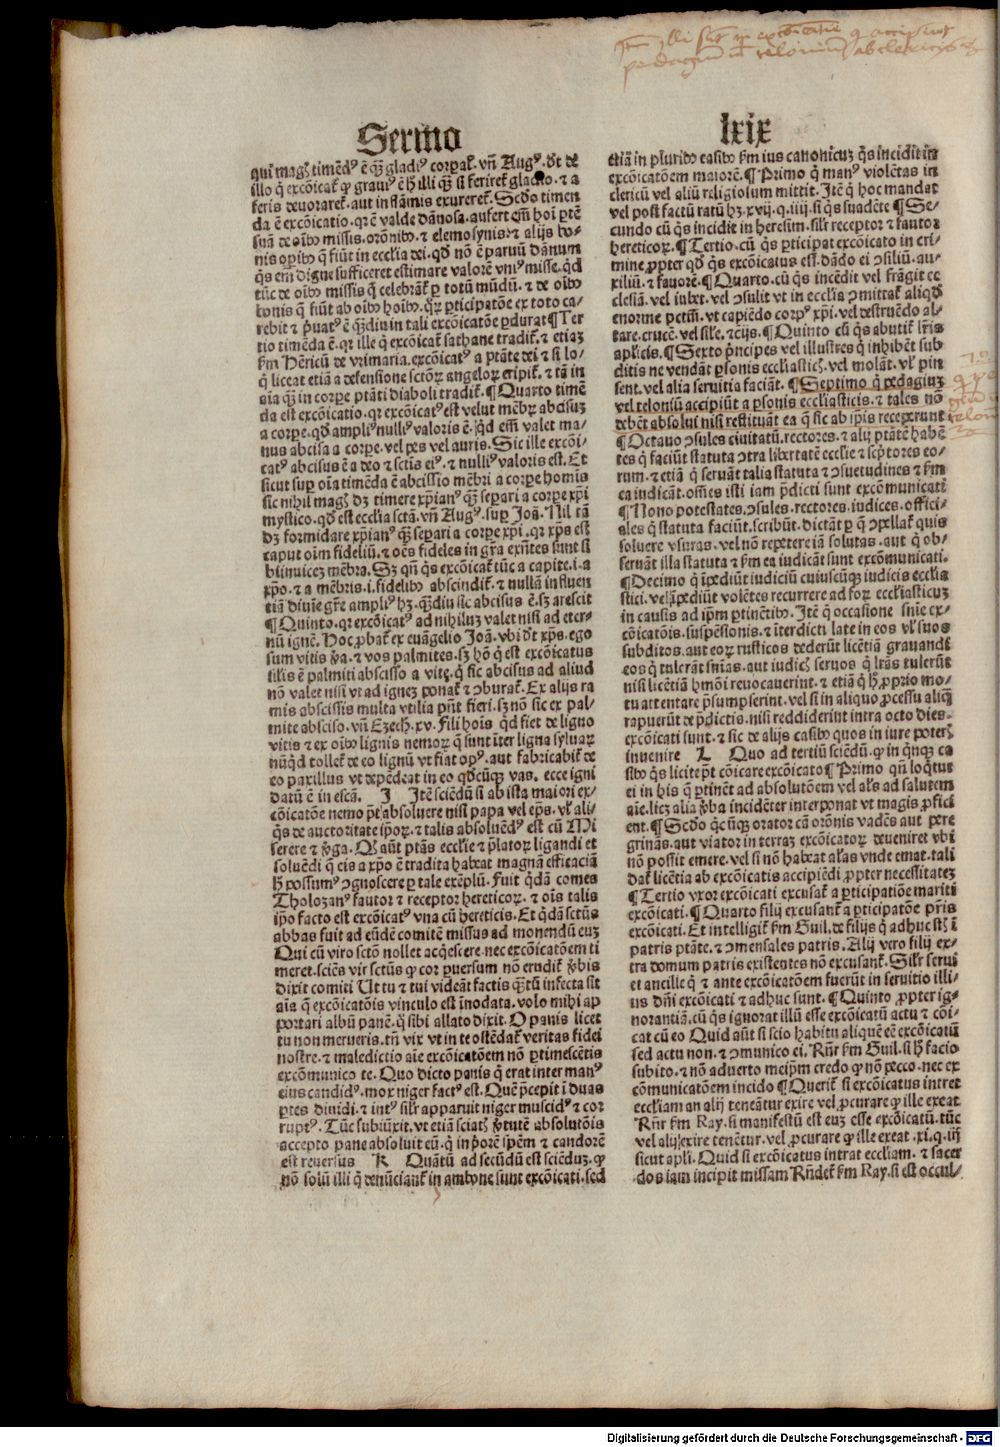 Sermo
lxix
qui magꝭ timēdꝰ ē q̄ꝫ gladiꝰ corꝑaƚ. vñ Augꝰ. dt̄ de
illo q̇ excōicaƭ ꝙ grauiꝰ ē ꝉ illi q̄ꝫ si feriret gladio. ⁊ a
feris deuorareƭ. aut in flāmis exurereƭ. Scd̓o timen
da ē excōicatio. qꝛ ē valde dānosa. aufert em̄ hoī ꝑtē
suā de oīb⁹ missis. orōnib⁹. ⁊ elemosynis. ⁊ alijs bo-
nis oꝑib⁹ q̄ fiūt in ecclia dei. qd̓ nō ē paruū dānum
qͥs em̄ digne sufficeret estimare valorē vniꝰ misse. qd̓
tūc de oīb⁹ missis q̄ celebrāƭ ꝑ totū mūdū. ⁊ de oīb⁹
bonis q̄ fiūt ab oīb⁹ hoīb⁹. qꝝ ꝑticipatōe ex toto ca-
rebit ⁊ p̓uatꝰ ē q̄ꝫdiu in tali excōicatōe ꝑdurat ¶ Ter
tio timēda ē. qꝛ ille q̇ excōicaƭ sathane tradiƭ. ⁊ etiaꝫ
ẜm Hēricū de vrimaria. excōicatꝰ a ptāte dei ⁊ si lo-
q̇ liceat etiā a defensione sctōꝝ angeloꝝ eripiƭ. ⁊ tā in
aīa q̄ꝫ in corꝑe ptāti diaboli tradiƭ. ¶ Quarto timē
da est excōicatio. qꝛ excōicatꝰ est velut mēbꝝ abcisuꝫ
a corꝑe. qd̓ ampliꝰ nulliꝰ valoris ē. qd̓ em̄ valet ma-
nus abcisa a corꝑe. vel pes vel auris. Sic ille excōi-
catꝰ abcisus ē a deo ⁊ sctīs eiꝰ. ⁊ nulliꝰ valoris est. Et
sicut suꝑ oīa timēda ē abcissio mēbri a corꝑe homīs
sic nihil magꝭ dꝫ timere xp̄ianꝰ q̄ꝫ seꝑari a corꝑe xp̄i
mystico. qd̓ est ecclia sctā. vñ Augꝰ. suꝑ Joā. Nil tā
dꝫ formidare xp̄ianꝰ q̄ꝫ seꝑari a corꝑe xp̄i. qꝛ xp̄s est
caput oīm fideliū. ⁊ oēs fideles in gr̄a exn̄tes sunt si
bijnuiceꝫ mēbra. Sꝫ qn̄ qͥs excōicaƭ tūc a capite. i. a
xp̄o. ⁊ a mēbris. i. fidelib⁹ abscindiƭ. ⁊ nullā influen
tiā diuīe gr̄e ampliꝰ hꝫ. q̄ꝫdiu sic abcisus ē. sꝫ arescit
¶ Quinto. qꝛ excōicatꝰ ad nihiluꝫ valet nisi ad eter-
nū ignē. Hoc ꝓbaƭ ex euāgelio Joā. vbi dt̄ xp̄s. ego
sum vitis ꝟa. ⁊ vos palmites. sꝫ hō q̇ est excōicatus
silis̄ ē palmiti abscisso a vite. q̇ sic abcisus ad aliud
nō valet nisi vt ad igneꝫ ponaƭ ⁊ ↄburaƭ. Ex alijs ra
mis abscissis multa vtilia pn̄t fieri. sꝫ nō sic ex pal-
mite absciso. vñ Ezech. xv. Fili hoīs qd̓ fiet de ligno
vitis ⁊ ex oīb⁹ lignis nemoꝝ q̄ sunt īter ligna syluaꝝ
nūqd̓ tolleƭ de eo lignū vt fiat opꝰ. aut fabricabiƭ de
eo paxillus vt depēdeat in eo qd̓cūqꝫ vas. ecce igni
datū ē in escā. I Itē sciēdū si ab ista maiori ex-
cōicatōe nemo pt̄ absoluere nisi papa vel ep̄s. vƚ ali-
qͥs de auctoritate ip̄oꝝ. ⁊ talis absoluēdꝰ est cū Mi
serere ⁊ ꝟga. Qd̓ aūt ptās ecclie ⁊ p̄latoꝝ ligandi et
soluēdi q̄ eis a xp̄o ē tradita habeat magnā efficaciā
ꝉ possumꝰ ↄgnoscere ꝑ tale exēplū. Fuit qͥdā comes
Tholozanꝰ fautor ⁊ receptor hereticoꝝ. ⁊ oīs talis
ip̄o facto est excōicatꝰ vna cū hereticis. Et qͥdā sctūs
abbas fuit ad eūdē comitē missus ad monendū euꝫ
Qui cū viro sctō nollet acq̇escere. nec excōicatōem ti
meret. sciēs vir sctūs ꝙ cor ꝑuersum nō erudiƭ ꝟbis
dixit comiti Ut tu ⁊ tui videāt factis q̄ꝫtū infecta sit
aīa q̄ excōicatōis vinculo est īnodata. volo mihi ap
portari albū panē. q̇ sibi allato dixit. O panis licet
tu non merueris. tn̄ vix vt in te ostēdaƭ veritas fidei
nostre. ⁊ maledictio aīe excōicatōem nō ꝑtimescētis
excōmunico te. Quo dicto panis q̇ erat inter manꝰ
eius candidꝰ. mox niger factꝰ est. Quē p̄cepit ī duas
ꝑtes diuidi. ⁊ intꝰ silr̄ apparuit niger muscidꝰ ⁊ cor
ruptꝰ. Tūc subiūxit. vt etiā sciatꝭ ꝟtutē absolutōis
accepto pane absoluit eū. q̇ in p̓orē spēm ⁊ candorē
est reuersus K Quātū ad secūdū est sciēduꝫ. ꝙ
nō solū illi q̇ denūcianƭ in ambone sunt excōicati. sed
etiā in plurib⁹ casib⁹ ẜm ius canonicuꝫ qͥs incidit in
excōicatōem maiorē. ¶ Primo q̇ manꝰ violētas in
clericū vel aliū religiosum mittit. Itē q̇ hoc mandat
vel post factū ratū hꝫ. xvij. q. iiij. si qͥs suadēte ¶ Se-
cundo cū qͥs incidit in heresim. silr̄ receptor ⁊ fautor
hereticoꝝ. ¶ Tertio. cū qͥs ꝑticipat excōicato in cri-
mine ꝓpter qd̓ qͥs excōicatus est. dādo ei ↄsiliū. au-
xiliū. ⁊ fauorē. ¶ Quarto. cū qͥs incēdit vel frāgit ec
clesiā. vel iubet. vel ↄsulit vt in ecclia ↄmittaƭ aliqd̓
enorme pctm̄. vt capiēdo corpꝰ xp̄i. vel destruēdo al-
tare. crucē. vel sile. ⁊ cꝭijs. ¶ Quinto cū qͥs abutiƭ lr̄is
apl̄icis. ¶ Sexto p̓ncipes vel illustres q̇ inhibēt sub
ditis ne vendāt ꝑsonis ecclīastich̄. vel molāt. vƚ pin
sent. vel alia seruitia faciāt. ¶ Septimo q̇ pedagiuꝫ
vel telonīū accipiūt a ꝑsonis ecclīasticis. ⁊ tales nō
debēt absolui nisi restituāt ea q̄ sic ab ip̄is receperunt
¶ Octauo ↄsules ciuitatū. rectores. ⁊ alij ptātē habē
tes q̇ faciūt statuta ↄtra libertatē ecclīe ⁊ sc̄ptores eo-
rum. ⁊ etiā q̇ seruāt talia statuta ⁊ ↄsuetudines ⁊ ẜm
ea iudicāt. om̄es isti iam p̄dicti sunt excōmunicati
¶ Nono potestates. ↄsules. rectores. iudices. offici-
ales q̇ statuta faciūt. scribūt. dictāt ꝑ q̄ ↄpellaƭ quis
soluere vsuras. vel nō repetere iā solutas. aut q̇ ob-
seruāt illa statuta ⁊ ẜm ea iudicāt sunt excōmunicati.
¶ Decimo q̇ īpediūt iudiciū cuiuscūqꝫ iudicis ecclia
stici. vel īpediūt volētes recurrere ad foꝝ ecclīasticuꝫ
in causis ad ip̄m ꝑtinētib⁹. Itē q̇ occasione snīe ex-
cōicatōis. suspēsionis. ⁊ īterdicti late in eos vƚ suos
subditos. aut eoꝝ rusticos dederūt licētiā grauandi
eos q̇ tulerāt sn̄ias. aut iudicꝭ seruos q̇ lr̄as tulerūt
nisi licētiā hmōi reuocauerint. ⁊ etiā q̇ ꝉ ꝓprio mo-
tu attentare p̄sumpserint. vel si in aliquo ꝓcessu aliqͣ
rapuerūt de p̄dictis. nisi reddiderint intra octo dies.
excōicati sunt. ⁊ sic de alijs casib⁹ quos in iure poterꝭ
inuenire L Quo ad tertiū sciēdū. ꝙ in qͥnqꝫ ca
sib⁹ qͥs licite pt̄ cōicare excōicato ¶ Primo qn̄ loqͥtur
ei in his q̄ ꝑtinēt ad absolutōem vel al̓s ad salutem
aīe. licꝫ alia ꝟba incidēter interponat vt magis ꝓfici
ent. ¶ Scd̓o qͥcūqꝫ orator cā orōnis vadēs aut pere
grinās. aut viator in terraꝫ excōicatoꝝ deueniret vbi
nō possit emere. vel si non habeat al̓as vnde emat. tali
daƭ licētia ab excōicatis accipiēdi ꝓpter necessitateꝫ
¶ Tertio vxor excōicati excusaƭ a ꝑticipatiōe mariti
excōicati. ¶ Quarto filij excusanƭ a ꝑticipatōe p̄ris
excōicati. Et intelligiƭ ẜm Guil. de filijs q̇ adhuc st̄ ī
patris ptāte. ⁊ ↄmensales patris. Alij vero filij ex-
tra domum patris existentes nō excusanƭ. Silr̄ serui
et ancille q̇ ⁊ ante excōicatōem fuerūt in seruitio illi-
us dn̄i excōicati ⁊ adhuc sunt. ¶ Quinto ꝓpter ig-
norantiā. cū qͥs ignorat illū esse excōicatū actu ⁊ cōi-
cat cū eo Quid aūt si scio habitu aliquē eē excōicatū
sed actu non. ⁊ ↄmunico ei. Rn̄r ẜm Guil. si ꝉ facio
subito. ⁊ nō aduerto meip̄m credo ꝙ nō pecco. nec ex
cōmunicatōem incido ¶ Queriƭ si excōicatus intret
ecclīam an alij teneātur exire vel ꝓcurare ꝙ ille exeat
Rn̄r ẜm Ray. si manifestū est euꝫ esse excōicatū. tūc
vel alij exire tenētur. vel ꝓcurare ꝙ ille exeat. xi. q. iij
sicut apl̄i. Quid si excōicatus intrat ecclīam. ⁊ sacer
dos iam incipit missam Rn̄deƭ ẜm Ray. si est occul-
Digitalisierung gefördert durch die Deutsche Forschungsgemeinschaft - DFG